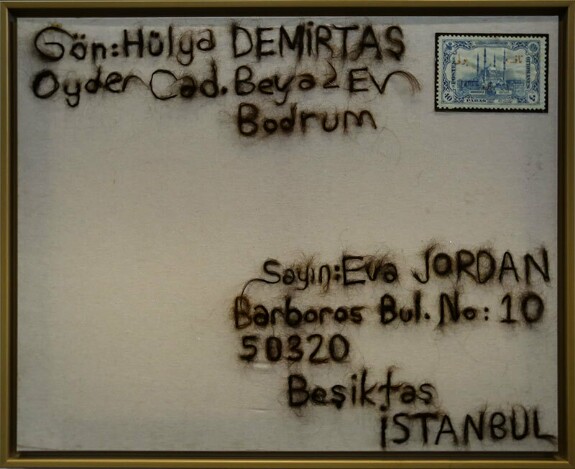 Gön:Hülya DEMİRTAŞ
Oyder Cad. Beyaz Ev
Bodrum
Sayın:Eva JORDAN
Barboros Bul. No: 10
50320
Beşiktaş
İSTANBUL